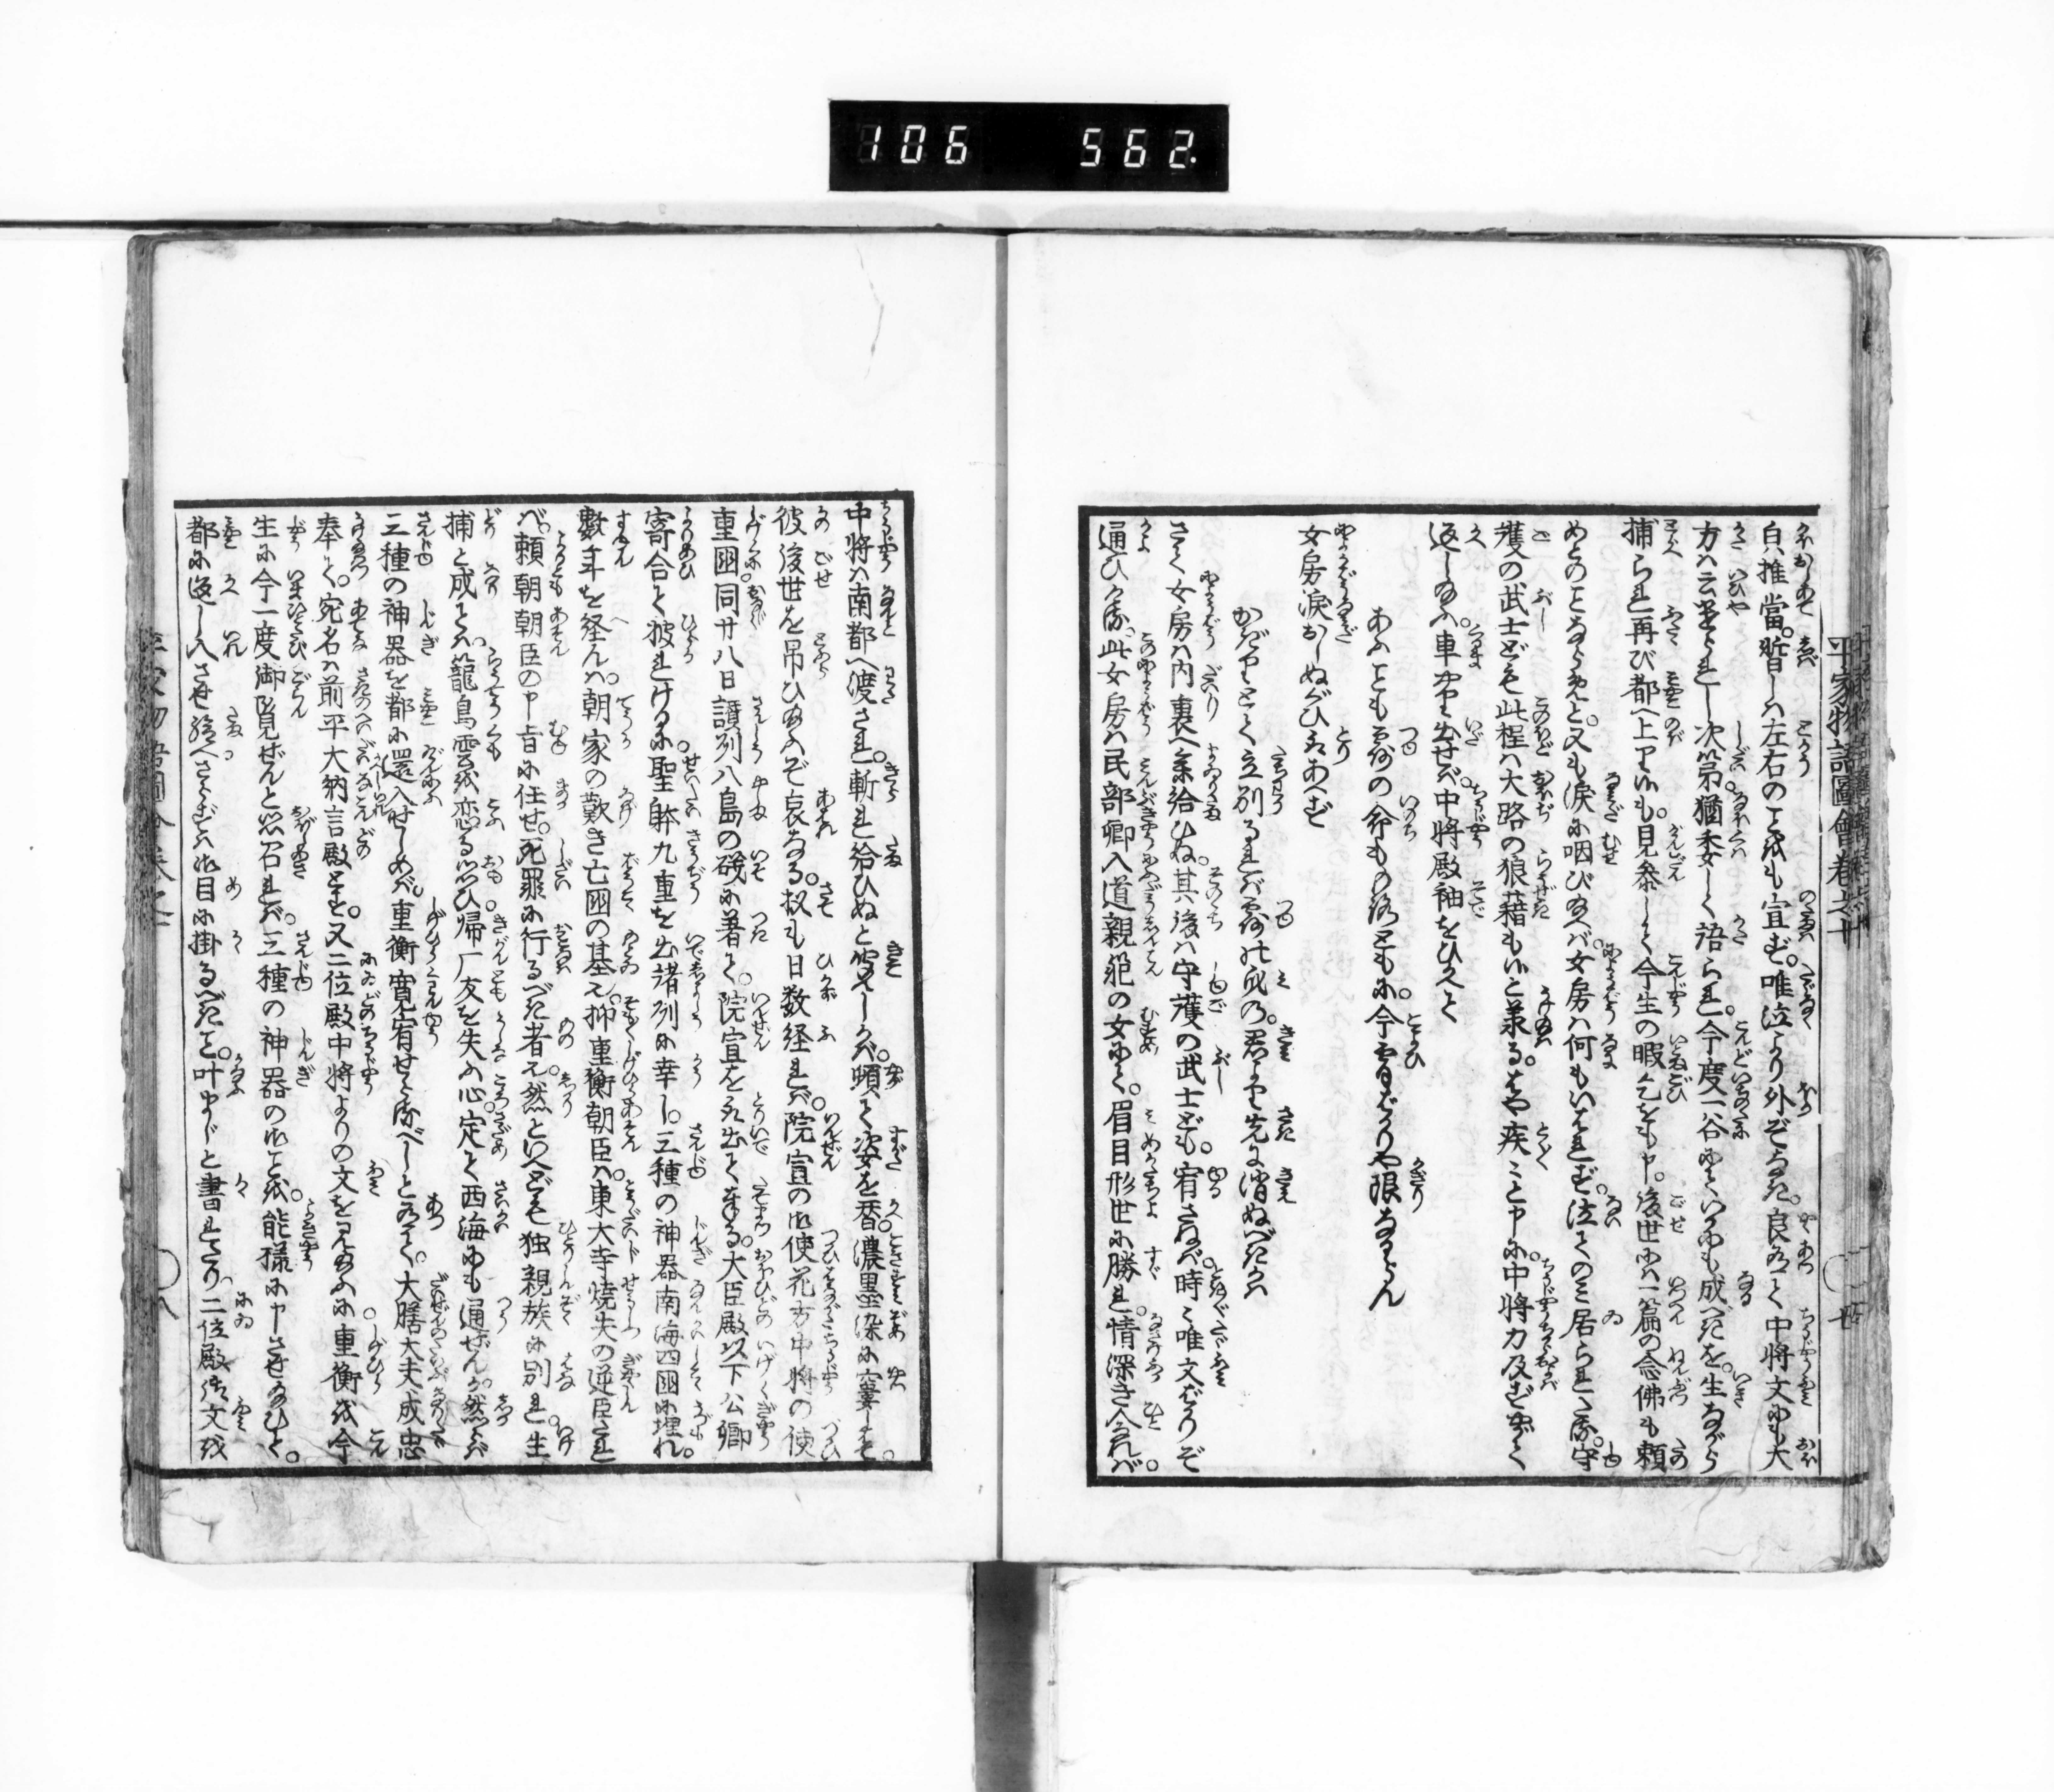 106 562.
平家物語圖會卷六
白推當。暫しハ左右のことをも宣はず。唯泣より外ぞなき。良有て中将文にも大
方ハ云置しかど。次第猶委しく語られ。今度一谷にていかにも成べきを。生ながら
捕られ再び都へ上り候も。見参して今生の暇乞をも申。後世にハ一篇の念佛も頼
めとのことならめと。又も涙に咽び給へバ女房ハ何もいはれず。泣てのミ居られたる。守
護の武士ども此程ハ大路の狼藉も候と承る。はや疾〻と申に。中将力及ばずして
返し給ふ。車やり出せば。中将殿袖をひかへて
あふことも露の命ももろともに。今宵ばかりや限なるらん
女房涙おしぬぐひ取あへず
かぎりとて立別るれバ露の身の。君より先に消ぬべきかな
さて女房ハ内裏へ参給ひぬ。其後ハ守護の武士ども。宥さねば時〻唯文ばかりぞ
通ひける。此女房ハ民部卿入道親範の女にて。眉目形世に勝れ。情深き人なれバ。
中将ハ南都へ渡され。斬れ給ひぬと聞えしかバ。頓て姿を替。濃墨染に窶しはて。
彼後世を吊ひ給ふぞ哀なる。扨も日数経れバ。院宣の御使花方中将の使
重國同廿八日讃州八島の磯に著て。院宣を取出て奉る。大臣殿以下公卿
寄合て披れけるに。聖躰九重を出諸州に幸し。三種の神器南海四國に埋れ。
數年を経んハ。朝家の歎き亡國の基也。抑重衡朝臣ハ。東大寺焼失の逆臣たれ
べ。頼朝朝臣の申旨に任せ。死罪に行るべき者也。然といへども独親族に別れ。生
捕と成てハ。籠鳥雲を恋る思ひ帰厂友を失ふ心定て西海にも通ぜんか。然らば
三種の神器を都に還入せしめバ。重衡寛宥せらるべしと有て。大膳大夫成忠
奉て。宛名ハ前平大納言殿とぞ。又二位殿中将よりの文を見給ふに。重衡を今
生に今一度御覧ぜんと思召れバ。三種の神器の御ことを。能様に申させ給ひて。
都に返し入させ給へ。さらずハ御目に掛るべきこと。叶まじと書れたり。二位殿御文を